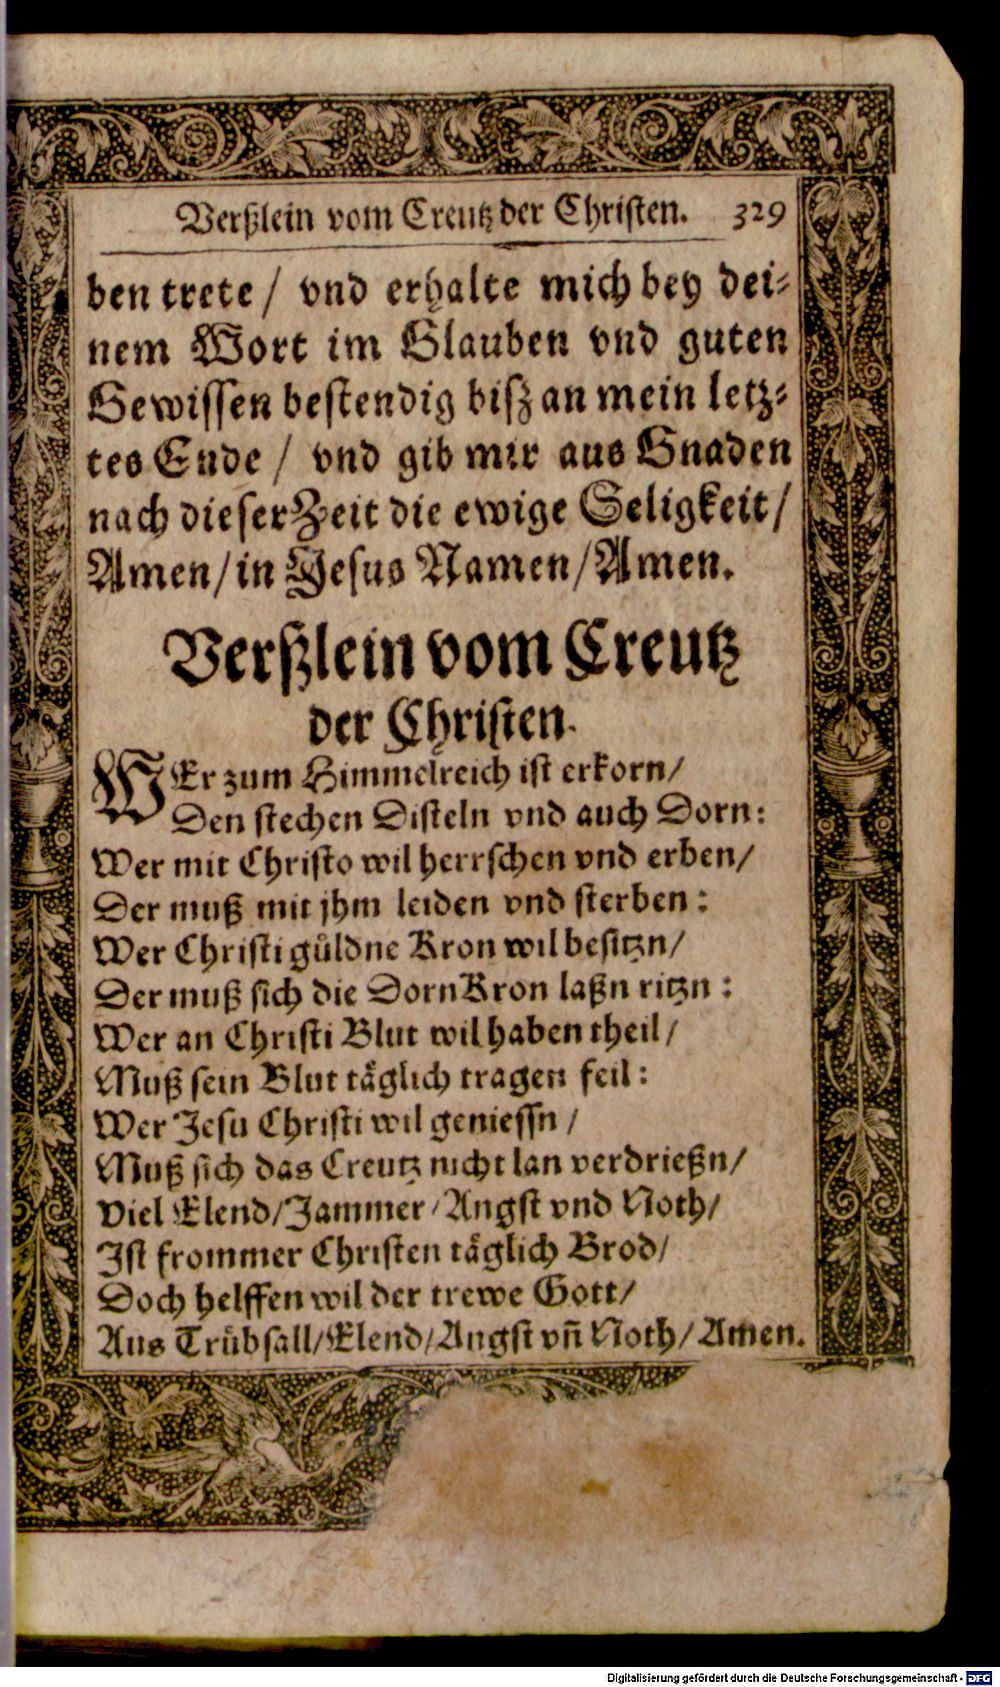 Verßlein vom Creutz der Christen. 329
ben trete / vnd erhalte mich bey dei-
nem Wort im Glauben vnd guten
Gewissen bestendig bisz an mein letz-
tes Ende / vnd gib mir aus Gnaden
nach dieser Zeit die ewige Seligkeit /
Amen / in Jesus Namen / Amen.
Verßlein vom Creutz
der Christen.
WEr zum Himmelreich ist erkorn /
Den stechen Disteln vnd auch Dorn:
Wer mit Christo wil herrschen vnd erben /
Der muß mit jhm leiden vnd sterben:
Wer Christi gůldne Kron wil besitzn /
Der muß sich die DornKron laßn ritzn:
Wer an Christi Blut wil haben theil /
Muß sein Blut täglich tragen feil:
Wer Jesu Christi wil geniessn /
Muß sich das Creutz nicht lan verdrießn /
Viel Elend / Jammer / Angst vnd Noth /
Ist frommer Christen täglich Brod /
Doch helffen wil der trewe Gott /
Aus Trůbsall / Elend / Angst vn̄ Noth / Amen.
Digitalisierung gefördert durch die Deutsche Forschungsgemeinschaft - DFG